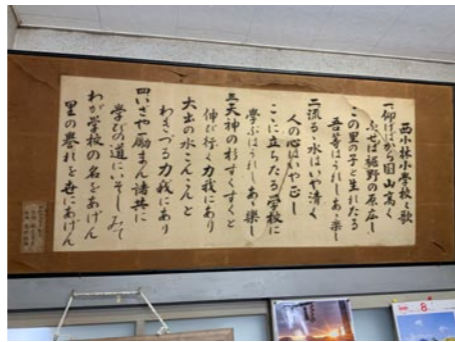 西小林小学校々歌
一、仰げばから国山高く
ふせば裾野の原広し
この里の子と生れたる
吾等はうれしあゝ楽し
二、流るゝ水はいや清く
人の心はいや正し
こゝに立ちたる学校に
学ぶはうれしあゝ楽し
三、天神の杉すくすくと
伸び行く力我にあり
大出の水こんこんと
わきづる力我にあり
四、いざや励まん諸共に
学びの道にいそしみて
わが学校の名をあげん
里の誉れを世にあげん
8